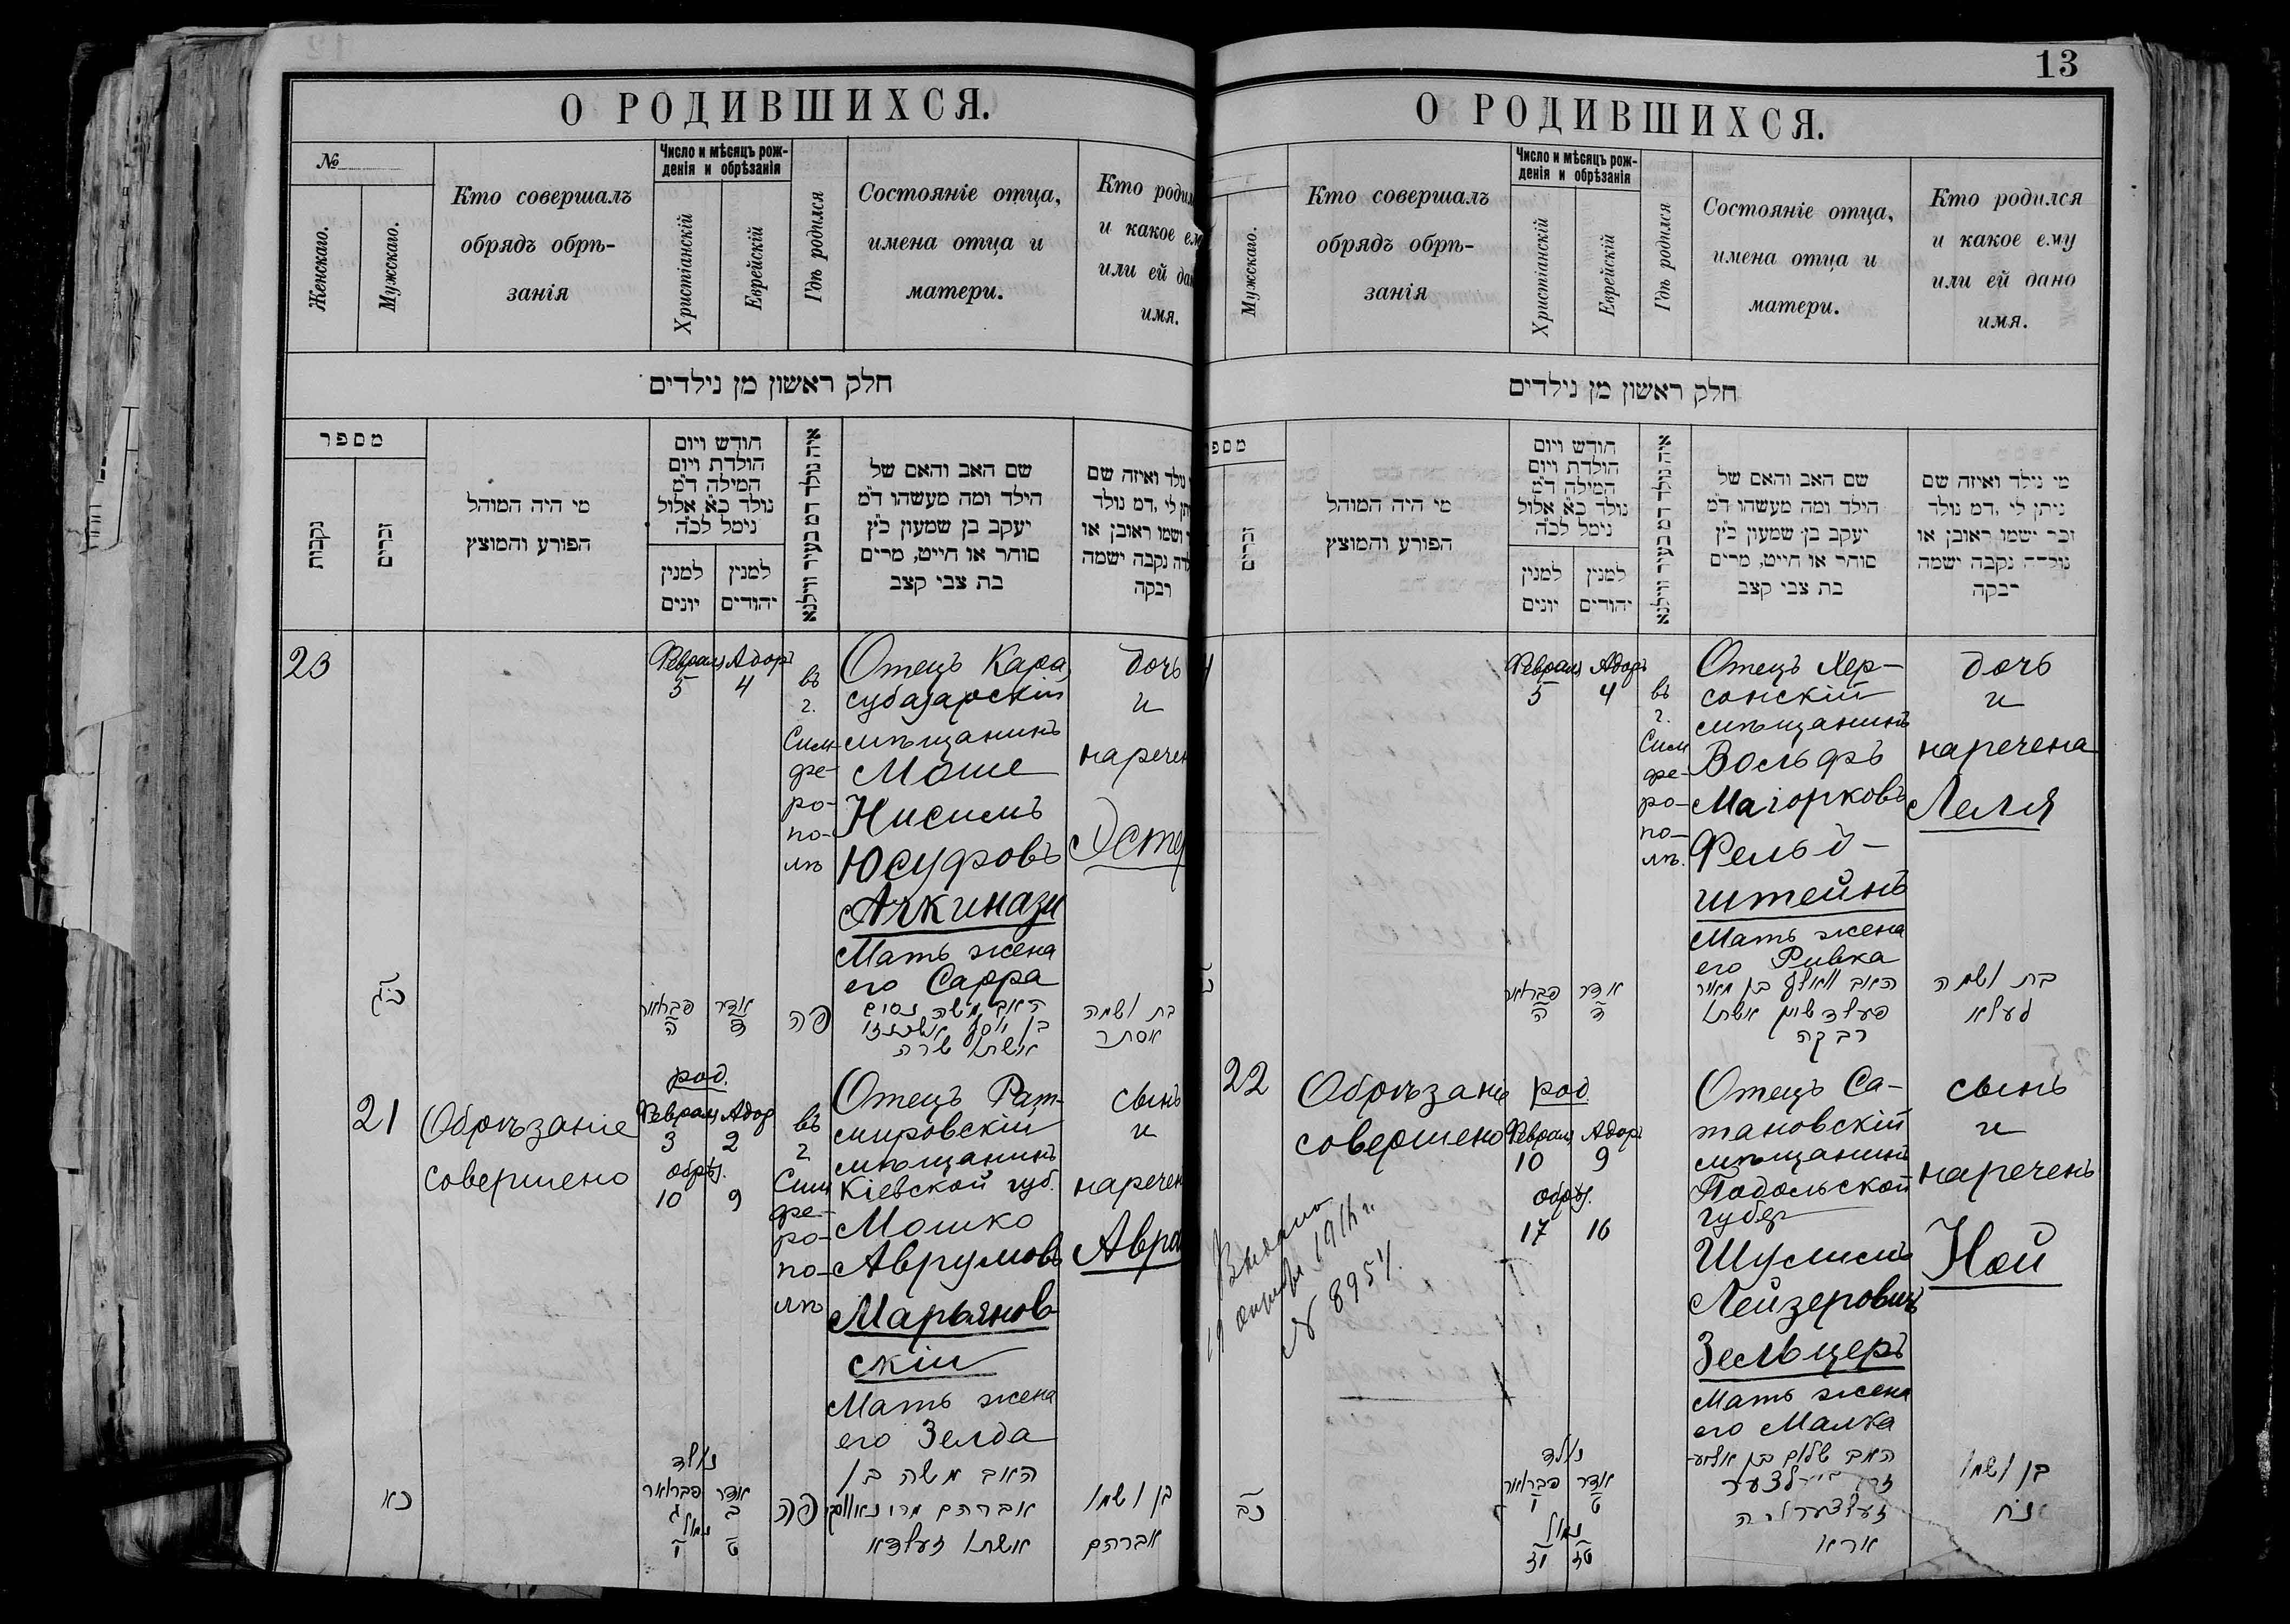 О РОДИВШИХСЯ.
№
Женскаго.
Мужскаго.
Кто совершалъ
обрядъ обрѣ-
занія
Число и мѣсяцъ рож-
денія и обрѣзанія
Христіанскій
Еврейскій
Гдѣ родился
Состояніе отца,
имена отца и
матери.
Кто
и какое
или ей
имя.
חלק ראשון מן נילדים
מספר
נקבות
זכרים
מי היה המוהל
הפורע והמוצץ
חודש ויום
הולדת ויום
המילה ד"מ
נולד כ"א אלול
נימל לכ"ה
למנין
יונים
למנין
יהודים
איה נולד דמ בעיר ווילנא
שם האב והאם של
הילד ומה מעשהו ד"מ
יעקב בן שמעון כ"ץ
סוחר או חייט, מרים
בת צבי קצב
נולד ואיזה שם
לי, דמ נולד
ושמו ראובן או
נקבה ישמה
רבקה
23
Февраля Адоръ
5 4
въ
г.
Сим-
фе-
ро-
по-
лѣ
Отецъ Кара
субазарскій
мѣщанинъ
Моше
Нисимъ
Юсуфовъ
Ачкинази
Мать жена
его Сарра
дочь
и
нарече
Эсте
כג
פבראאר
ה
אדר
ד
פה
האב משה נסים
בן יוסף אשכנזי
אשתו שרה
בת ושמה
אסתר
21
Обрѣзаніе
совершено
род.
Февраля Адор
3 2
обрѣз.
10 9
въ
г.
Сим
фе-
ро-
по-
лѣ
Отецъ Рат-
мировскій
мѣщанинъ
Кіевской губ.
Мошко
Аврумовъ
Марьянов-
скій
Мать жена
его Зелда
сынъ
и
наречен
Авра
כא
נולד
פבראאר
ג
אדר
ב
נמול
י
ט
פה
האב משה בן
אברהם
אשתו זעלדא
בן ושמו
אברהם
13
О РОДИВШИХСЯ.
Мужскаго.
Кто совершалъ
обрядъ обрѣ-
занія
Число и мѣсяцъ рож-
денія и обрѣзанія
Христіанскій
Еврейскій
Гдѣ родился
Состояніе отца,
имена отца и
матери.
Кто родился
и какое ему
или ей дано
имя.
חלק ראשון מן נילדים
זכרים
מי היה המוהל
הפורע והמוצץ
חודש ויום
הולדת ויום
המילה ד"מ
נולד כ"א אלול
נימל לכ"ה
למנין
יונים
למנין
יהודים
איה נולד דמ בעיר ווילנא
שם האב והאם של
הילד ומה מעשהו ד"מ
יעקב בן שמעון כ"ץ
סוחר או חייט, מרים
בת צבי קצב
מי נילד ואיזה שם
ניתן לי, דמ נולד
זכר ישמו ראובן או
נולדה נקבה ישמה
רבקה
Февраля Адоръ
5 4
въ
г.
Сим
фе-
ро-
по-
лѣ.
Отецъ Хер-
сонскій
мѣщанинъ
Вольфъ
Маіорковъ
Фельд-
штейнъ
Мать жена
его Ривка
дочь
и
наречена
Леля
פבראאר
ה
אדר
ד
האב וואלף בן מאיר
פעלדשטין אשתו
רבקה
בת ושמה
לעלא
22
Обрѣзаніе
совершено
род
Февраля Адоръ
10 9
обрѣз.
17 16
Отецъ Са-
тановскій
мѣщанинъ
Подольской
губер
Шулимъ
Лейзеровичъ
Зельцеръ
Мать жена
его Малка
сынъ
и
нареченъ
Ной
Выдано
19
№ 8957.
כב
נולד
פבראאר
י
אדר
ט
נמול
יז
טז
האב שלום בן
בן ושמו
נח